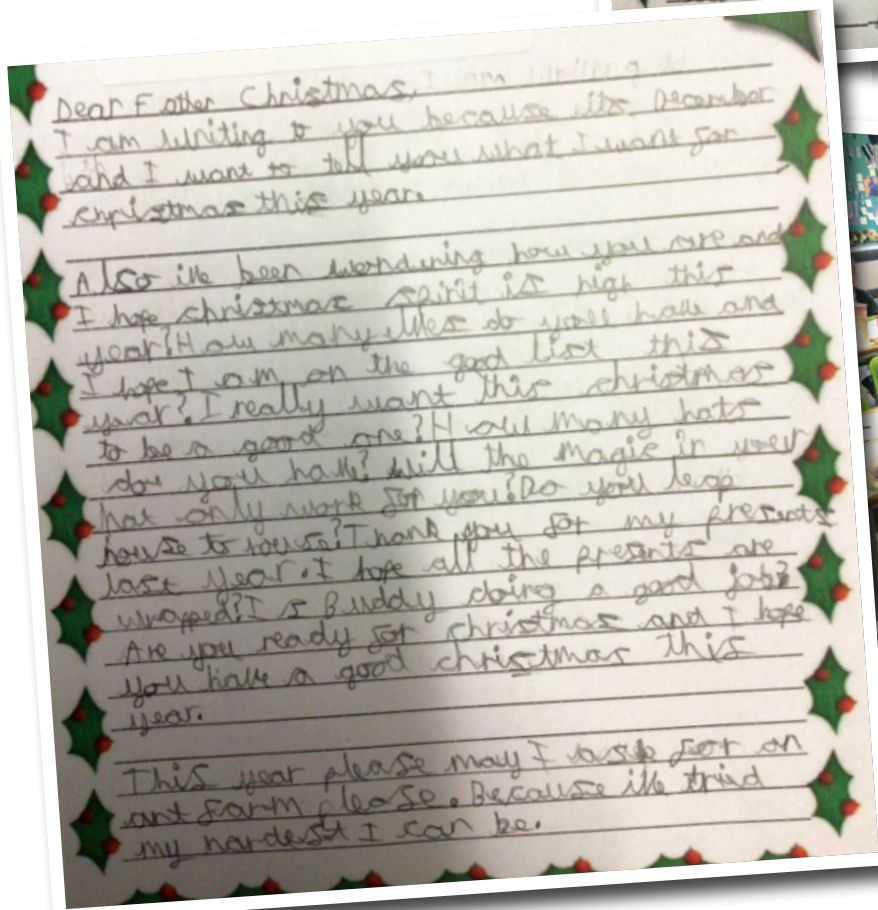 Dear Father Christmas,
I am writing to you because its December
and I want to tell you what I want for
christmas this year.
Also ive been wondering how you are and
I hope christmas spirit is high this
year! How many elves do you have and
I hope I am on the good list this
year? I really want this christmas
to be a good one? How many hats
do you have? Will the magic in your
hat only work for you? Do you leap
house to house? Thank you for my presents
last year. I hope all the presents are
wrapped? Is Buddy doing a good job?
Are you ready for christmas and I hope
you have a good christmas this
year.
This year please may I ask for an
ant farm please. Because ive tried
my hardest I can be.